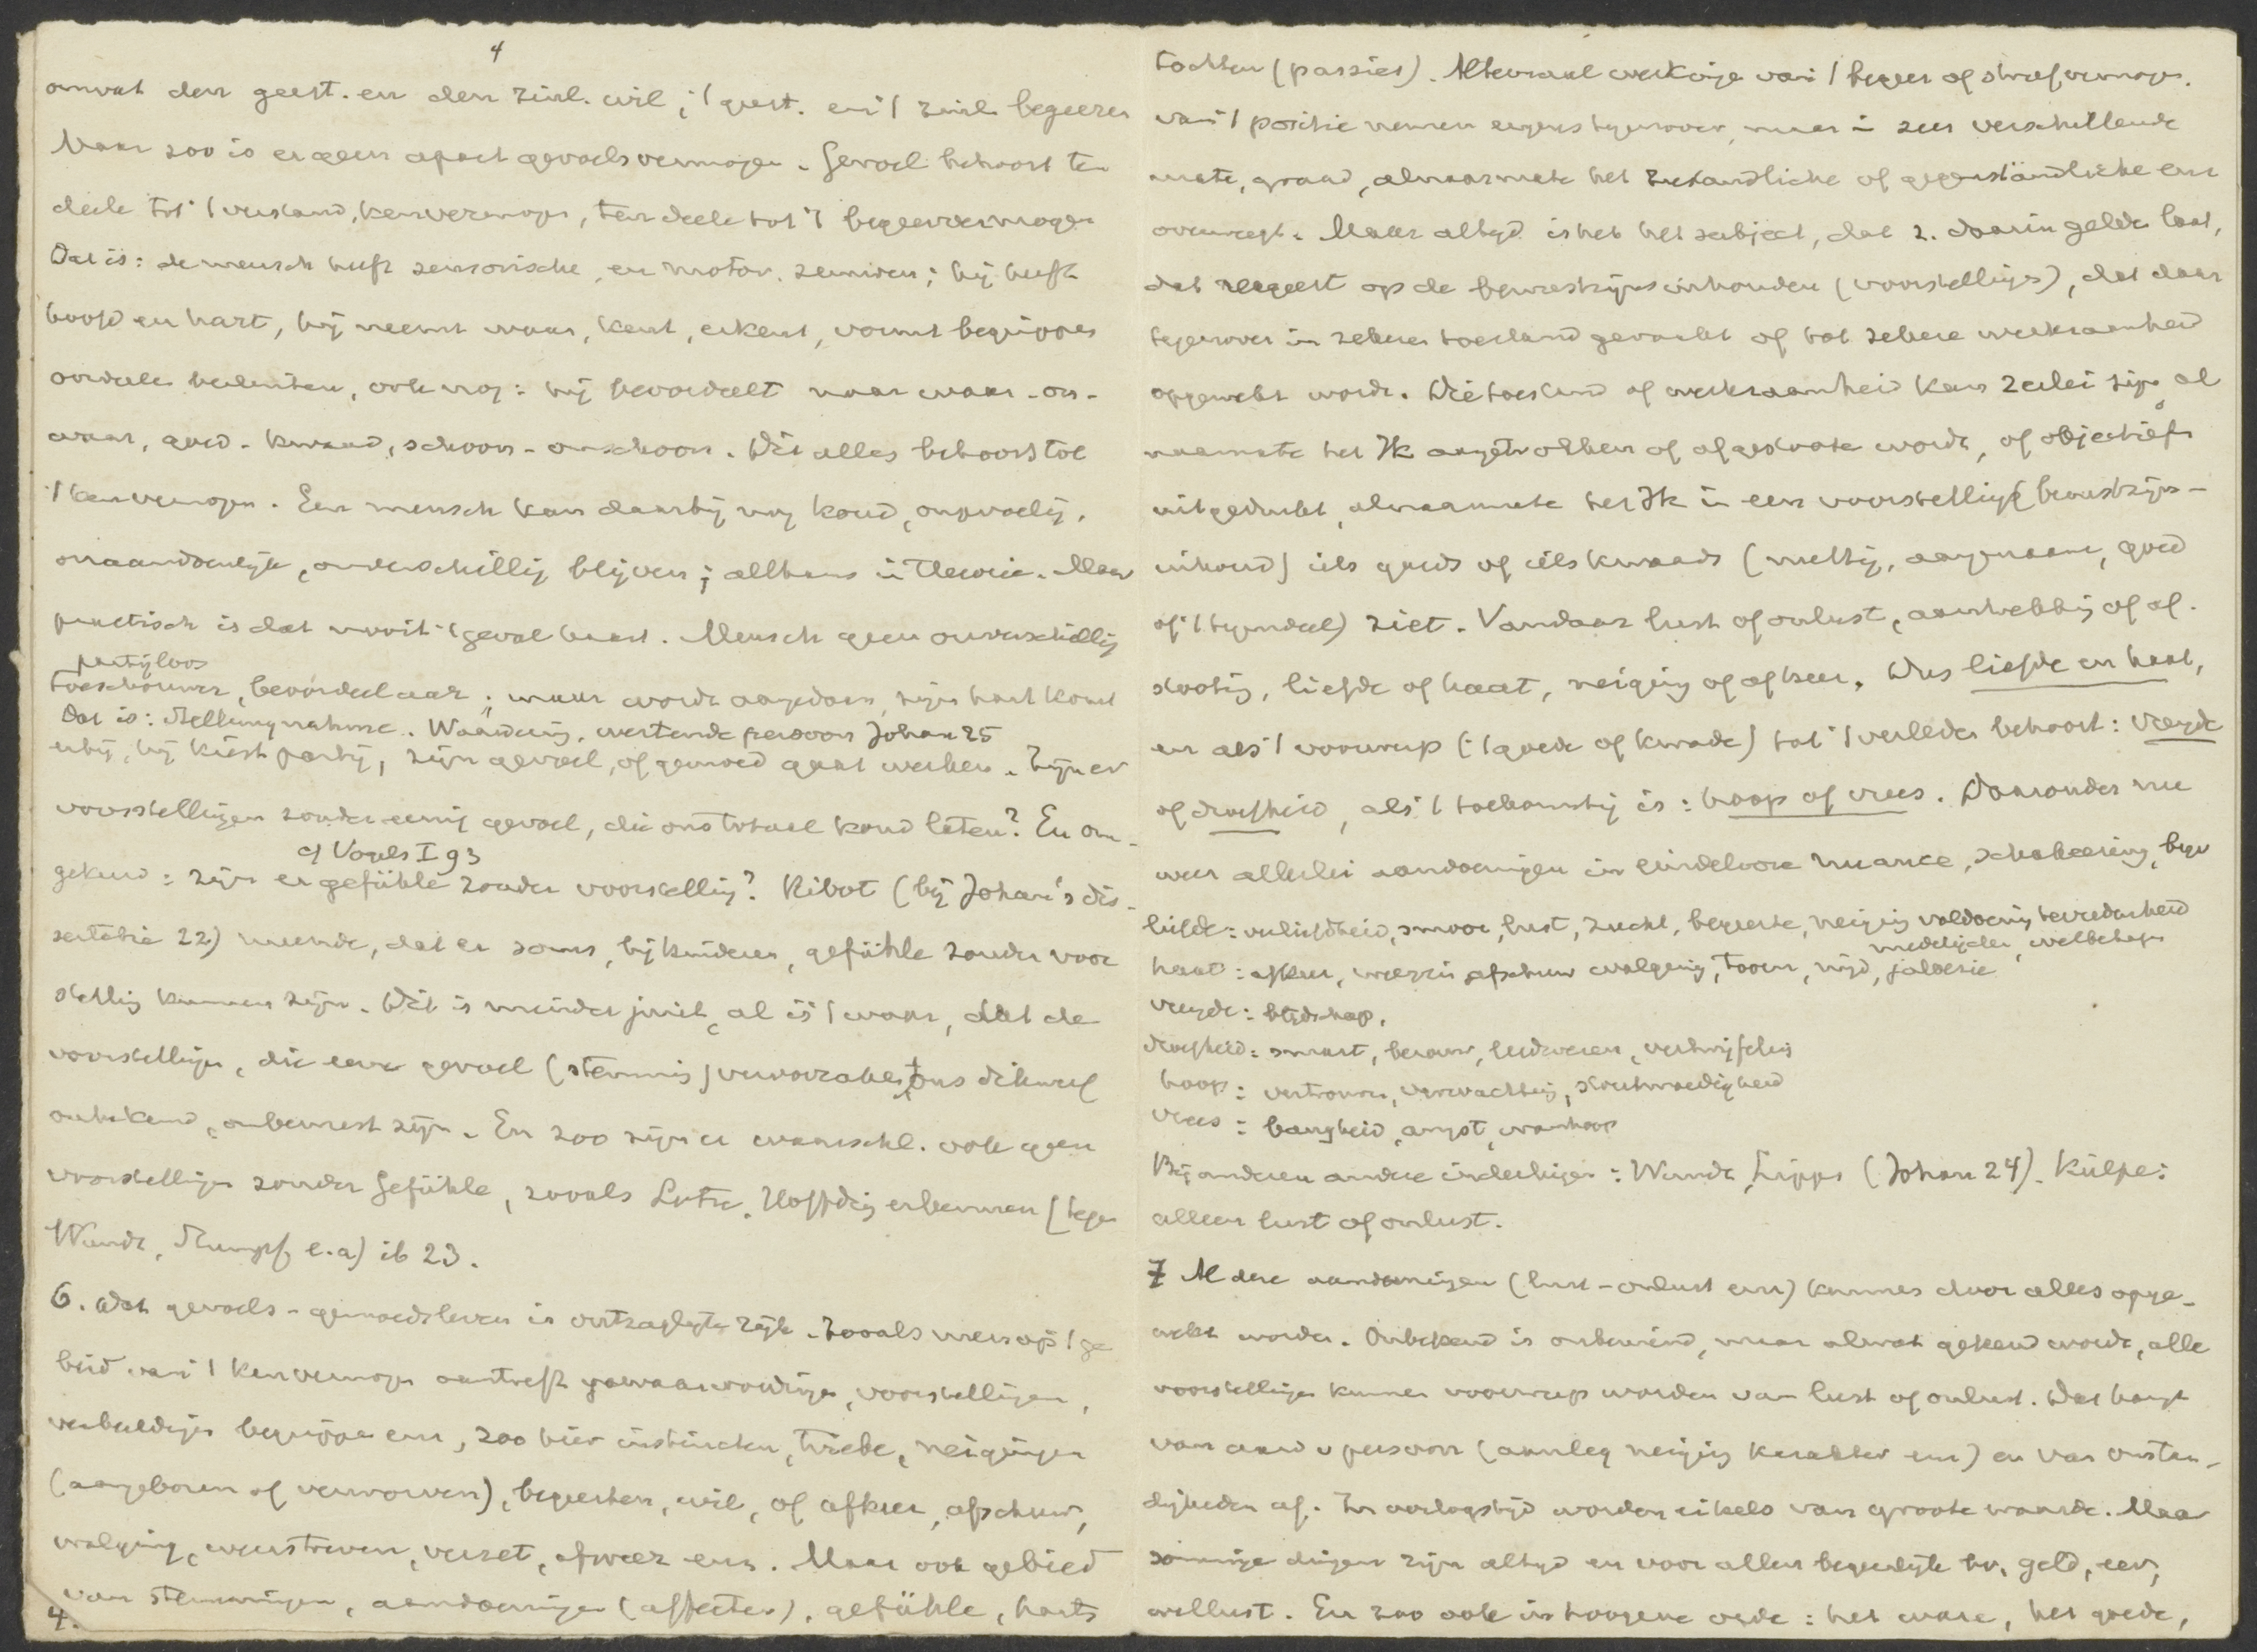 4
omvat den geest. en den zinl. wil; 't geest. en 't zinl. begeeren
Maar zoo is er geen apart gevoelsvermogen. Gevoel behoort ten
deele tot 't verstand, kenvermogen, ten deele tot 't begeervermogen
Dat is: de mensch heeft sensorische en motor. zenuwen; hij heeft
hoofd en hart, hij neemt waar, kent, erkent, vormt begrippen
oordeelen besluiten, ook nog: hij beoordeelt naar waar-on-
waar, goed-kwaad, schoon-onschoon. Dit alles behoort tot
't kenvermogen. Een mensch kan daarbij nog koud, ongevoelig,
onaandoenlijk, onverschillig blijven; althans in theorie. Maar
practisch is dat nooit 't geval haast. Mensch geen onverschillig
partijloos
toeschouwer, beoordeelaar; maar wordt aangedaan, zijn hart komt
Dat is: Stellungnahme. Waardeering, wertende persoon Johan 25
erbij, hij kiest partij, zijn gevoel, of gemoed gaat werken. Zijn er
voorstellingen zonder eenig gevoel, die ons totaal koud laten? En om-
cf Vogels I 93
gekeerd: zijn er gefühle zonder voorstelling? Ribot (bij Johan's dis-
sertatie 22) meende, dat er soms, bij kinderen, gefühle zonder voor
stelling kunnen zijn. Dit is minder juist, al is 't waar, dat de
voorstellingen, die een gevoel (stemming) veroorzaken, ons dikwerf
onbekend, onbewust zijn. En zoo zijn er waarschl. ook geen
voorstellingen zonder Gefühle, zooals Lotze, Höffding erkennen (tegen
Wundt, Stumpf, e.a) ib 23.
6. Dat gevoels-gemoedsleven is ontzaglijk rijk. Zooals men op 't ge
bied van 't kenvermogen aantreft gewaarwordingen, voorstellingen,
verbeeldingen begrippen enz, zoo hier instincten, triebe, neigingen
(aangeboren of verworven), begeerten, wil, of afkeer, afschuw,
walging, weerstreven, verzet, afweer enz. Maar ook gebied
van stemmingen, aandoeningen (affecten), gefühle, harts
4.
tochten (passies). Altemaal werkingen van 't begeer of streefvermogen.
van 't positie nemen ergens tegenover, maar in zeer verschillende
mate, graad, al naarmate het zuständliche of gegenständliche enz
overweegt. Maar altijd is het het subject, dat z. daarin gelden laat,
dat reageert op de bewustzijnsinhouden (voorstellingen), dat daar
tegenover in zekeren toestand gevoelt of tot zekere werkzaamheid
opgewekt wordt. Die toestand of werkzaamheid kan zeer zijn al
naarmate het Ik aangetrokken of afgestooten wordt, of objectief
uitgedrukt, al naarmate het Ik in een voorstelling (bewustzijns-
inhoud) iets goeds of iets kwaads (nuttig, aangenaam, goed
of 't tegendeel) ziet. Vandaar lust of onlust, aantrekking of af-
stooting, liefde of haat, neiging of afkeer. Dus liefde en haat,
en als 't voorwerp ('t goede of kwade) tot 't verleden behoort: vreugde
of droefheid, als 't toekomstig is: hoop of vrees. Daaronder nu
weer allerlei aandoeningen in eindelooze nuance, schakeering, bijv
liefde: verliefdheid, smoor, lust, zucht, begeerte, neiging voldoening tevredenheid
medelijden, welbehagen
haat: afkeer, weerzin afschuw walging, toorn, nijd, jaloezie
vreugde: blijdschap,
droefheid: smart, berouw, leedwezen, vertwijfeling
hoop: vertrouwen, verwachting, stoutmoedigheid
vrees: bangheid, angst, wanhoop
Bij anderen andere indeelingen: Wundt, Lipps (Johan 24). Külpe:
alleen lust of onlust.
7 Al deze aandoeningen (lust-onlust enz) kunnen door alles opge-
wekt worden. Onbekend is onbemind, maar al wat gekend wordt, alle
voorstellingen kunnen voorwerp worden van lust of onlust. Dat hangt
van aard v persoon (aanleg neiging karakter enz) en van omstan-
digheden af. In oorlogstijd worden eikels van groote waarde. Maar
sommige dingen zijn altijd en voor allen begeerlijk bv. geld, eer,
wellust. En zoo ook in hoogere orde: het ware, het goede,